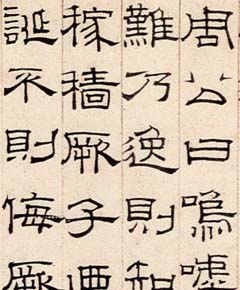 周公曰嗚嘑
難乃逸則知
稼穡厥子迺
誕不則侮厥